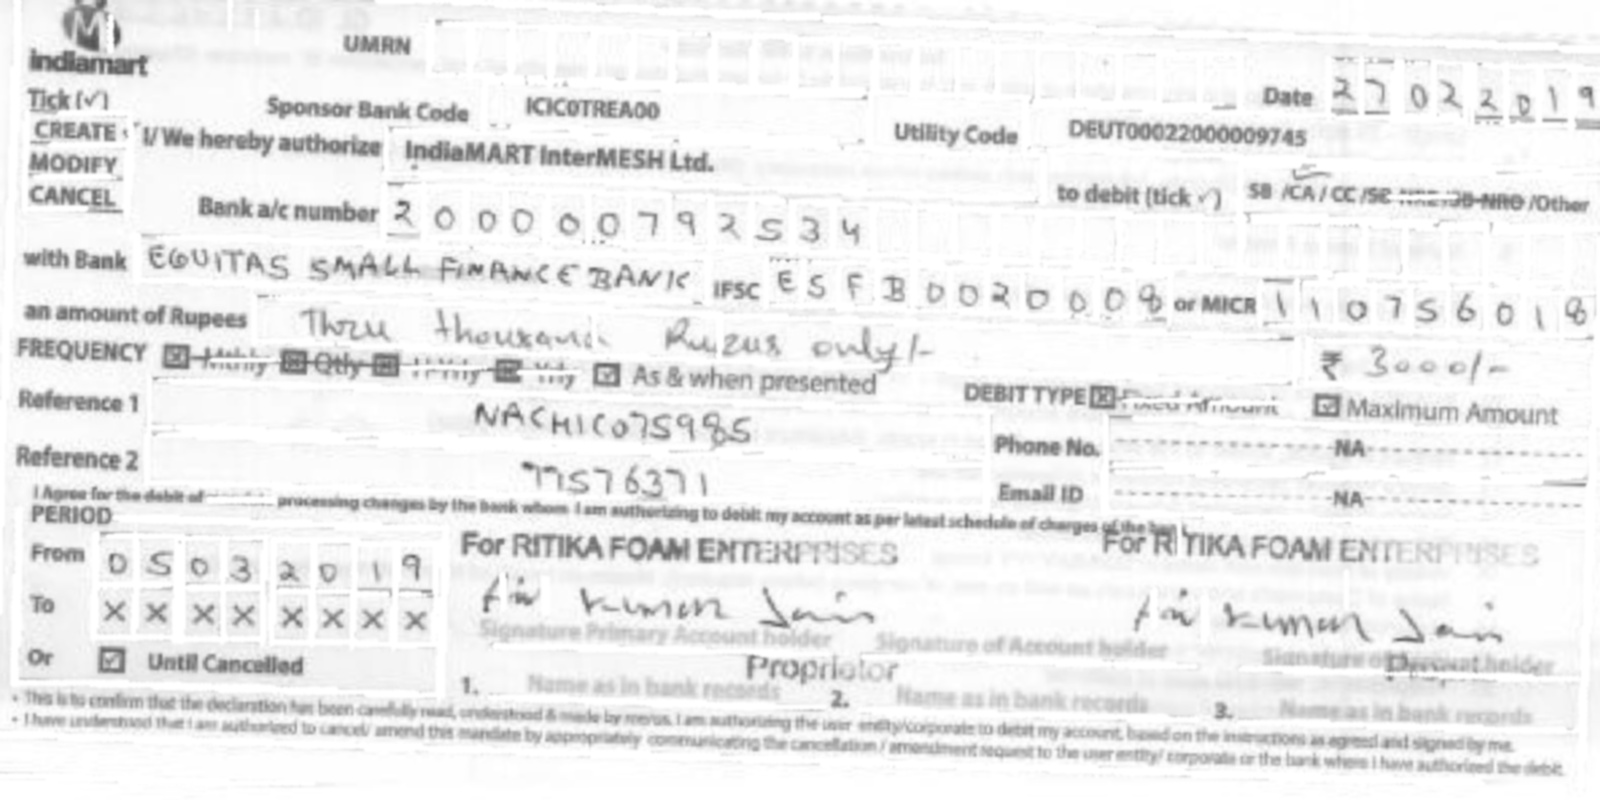 indiamart
UMRN
Date 27022019
Tick (✓)
Sponsor Bank Code ICIC0TREA00
Utility Code DEUT00022000009745
CREATE
MODIFY
CANCEL
I/We hereby authorize IndiaMART InterMESH Ltd.
to debit (tick ✓) SB /CA / CC /SB-NRE /SB-NRO /Other
Bank a/c number 200000792534
with Bank EQUITAS SMALL FINANCE BANK IFSC ESFB0020008 or MICR 110756018
an amount of Rupees Three thousand Rupees only/- ₹ 3000/-
FREQUENCY Mthly Qtly H-Yrly Yrly As & when presented
DEBIT TYPE Fixed Amount Maximum Amount
Reference 1 NACHICO75985
Phone No. NA
Reference 2 77576371
Email ID NA
I Agree for the debit of processing changes by the bank whom I am authorizing to debit my account as per latest schedule of charges of the bank
PERIOD
From 05032019
To XXXXXXXX
Or Until Cancelled
For RITIKA FOAM ENTERPRISES
For RITIKA FOAM ENTERPRISES
Kumar Jain
Kumar Jain
Signature Primary Account holder
Signature of Account holder
Signature of Account holder
Proprietor
1. Name as in bank records
2. Name as in bank records
3. Name as in bank records
• This is to confirm that the declaration has been carefully read, understood & made by me/us. I am authorizing the user entity/corporate to debit my account, based on the instructions as agreed and signed by me.
• I have understood that I am authorized to cancel/ amend this mandate by appropriately communicating the cancellation / amendment request to the user entity/ corporate or the bank where I have authorized the debit.